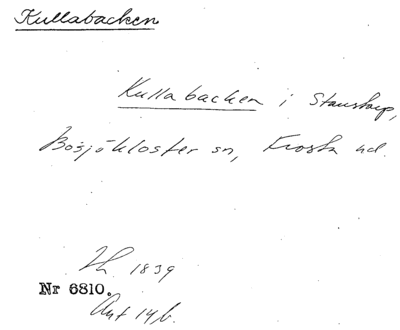 Kullabacken
Kullabacken i Stanstorp,
Bosjökloster sn, Frosta hd.
Th. 1839
Nr 6810.
Ant 14/6.